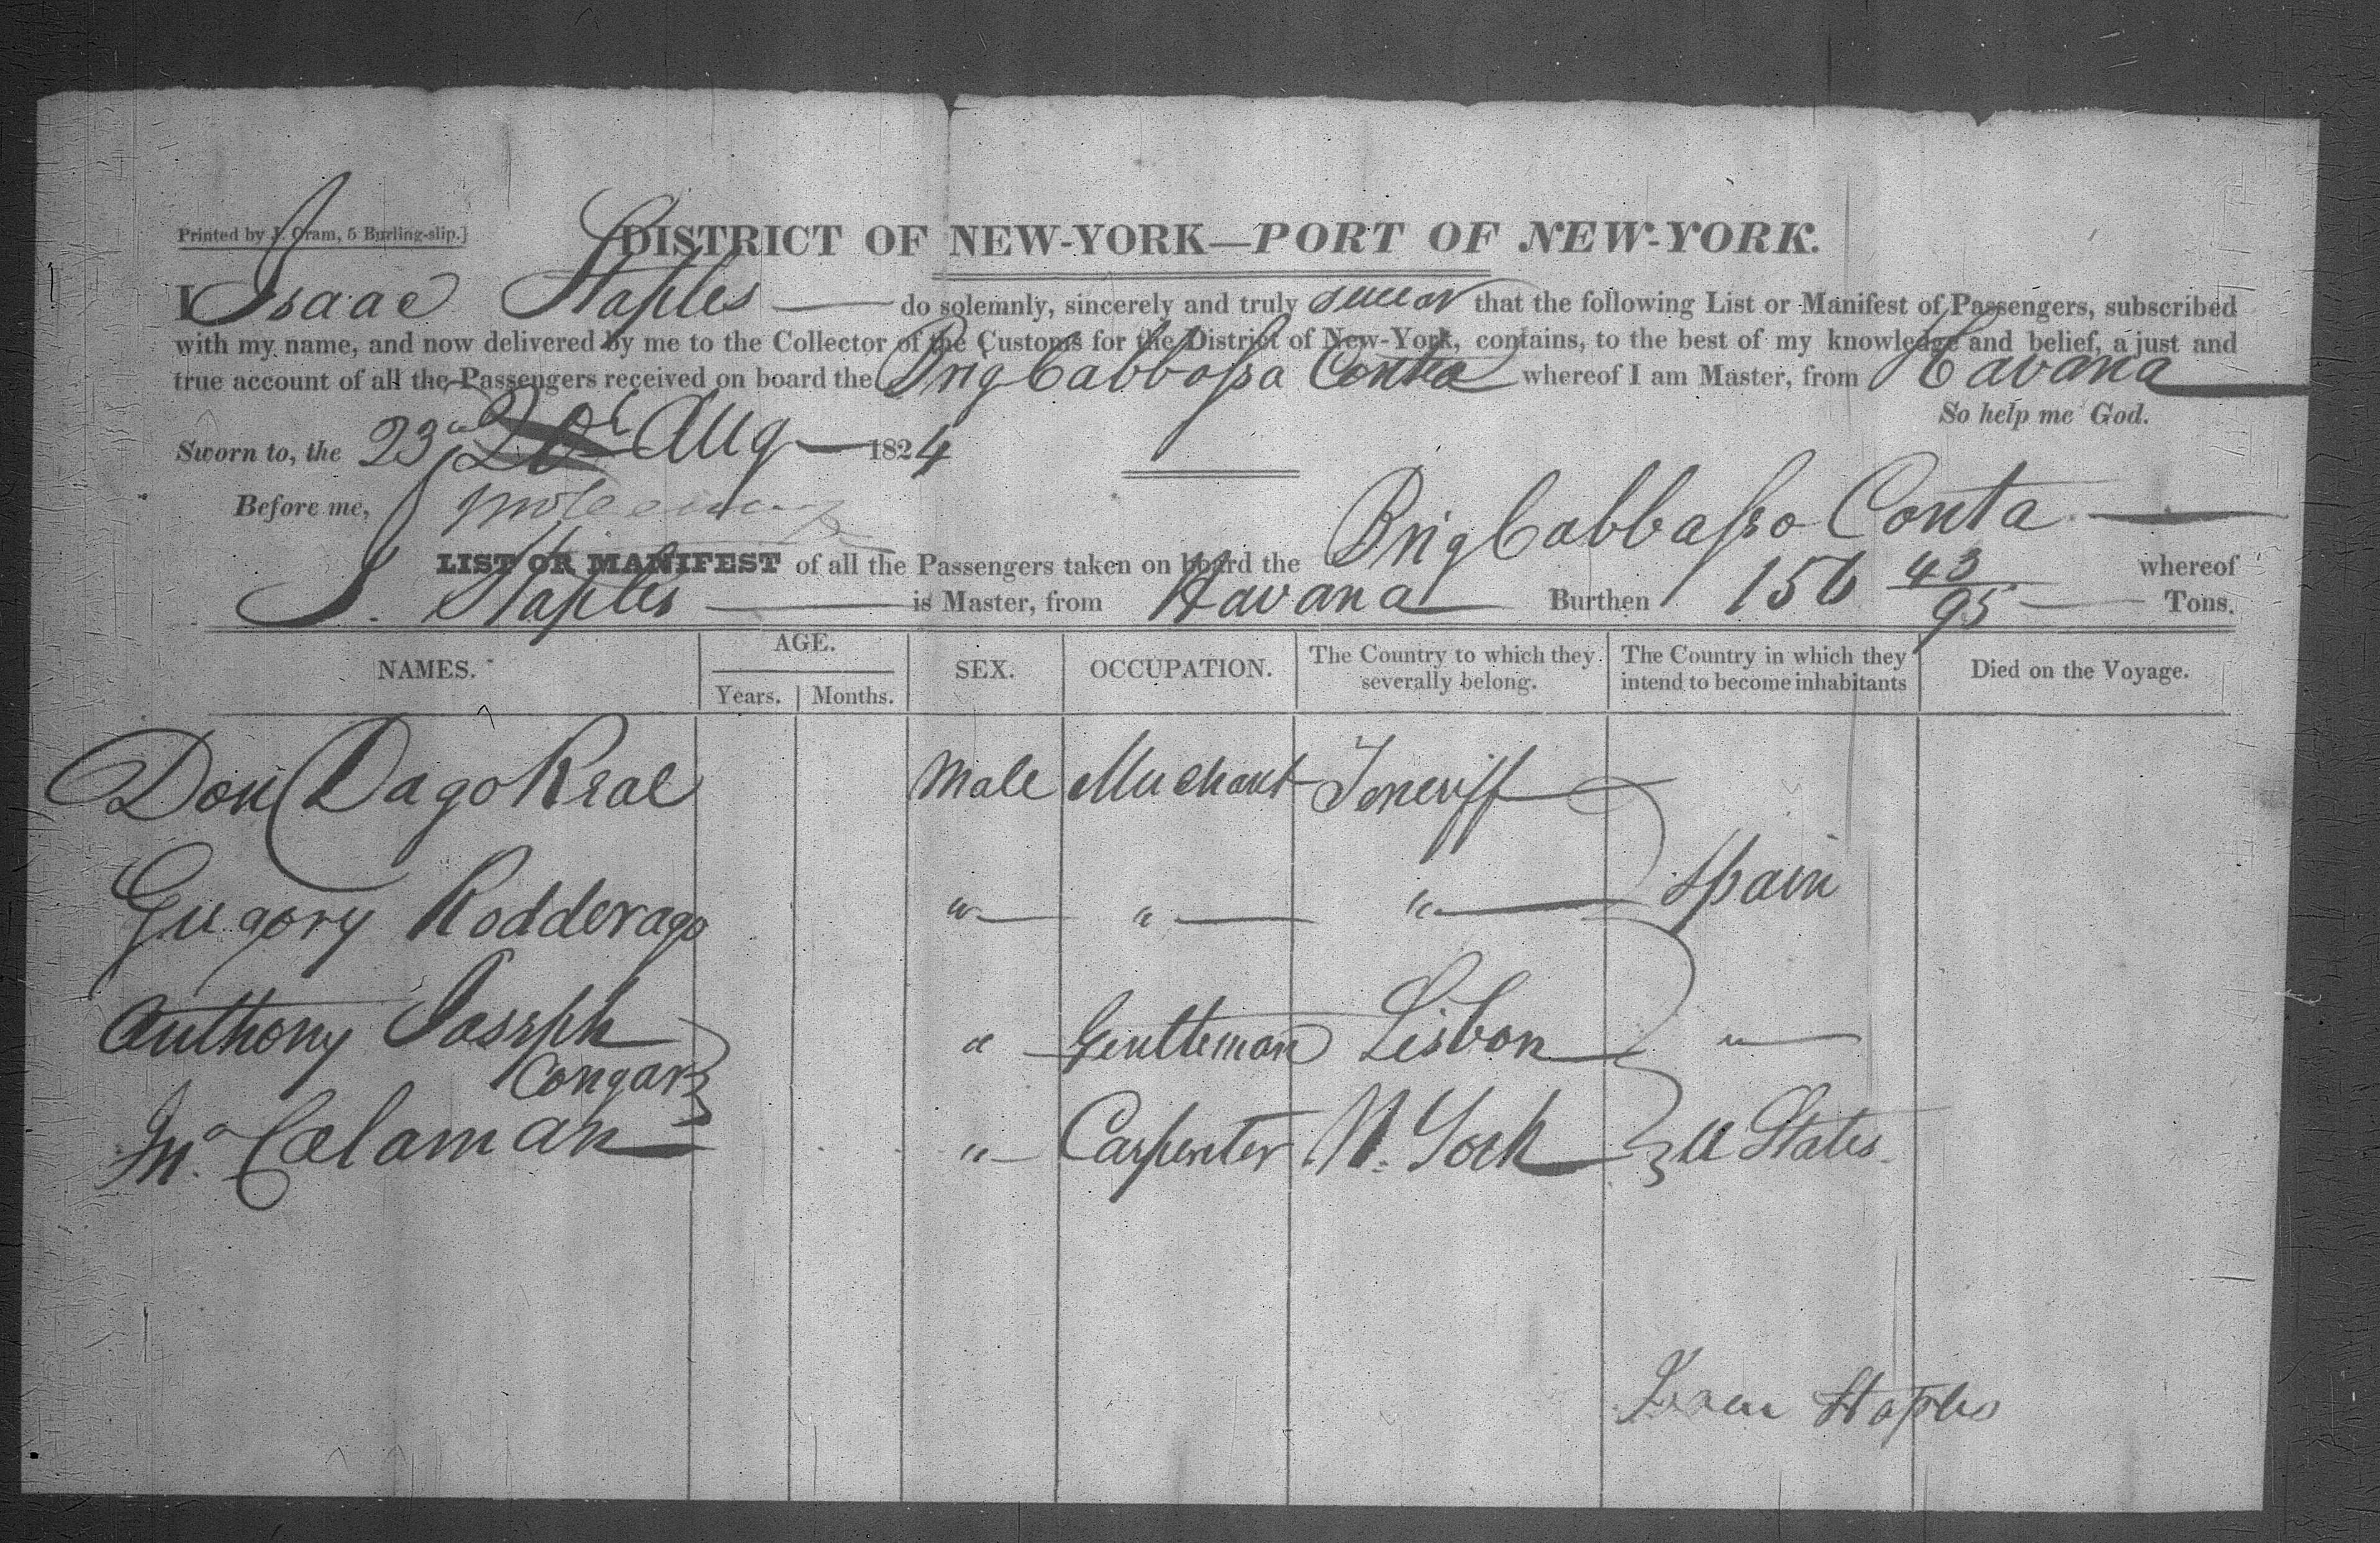 Printed by J. Oram, 5 Burling-slip.]
DISTRICT OF NEW-YORK—PORT OF NEW-YORK.
I Isaac Staples — do solemnly, sincerely and truly swear that the following List or Manifest of Passengers, subscribed
with my name, and now delivered by me to the Collector of the Customs for the District of New-York, contains, to the best of my knowledge and belief, a just and
true account of all the Passengers received on board the Brig Cabbassa Conta whereof I am Master, from Havana
So help me God.
Sworn to, the 23rd 20th Aug — 1824
Before me,
LIST OR MANIFEST of all the Passengers taken on board the Brig Cabbasso Conta — whereof
I. Staples — is Master, from Havana Burthen 156 43/95 — Tons.
NAMES. AGE. SEX. OCCUPATION. The Country to which they severally belong. The Country in which they intend to become inhabitants Died on the Voyage.
Years. Months.
Don Dago Real Male Merchant Teneriff
Gregory Rodderago " " " Spain
Anthony Joseph Congar " Gentleman Lisbon "
Jno. Calaman " Carpenter N. York U States
Isaac Staples